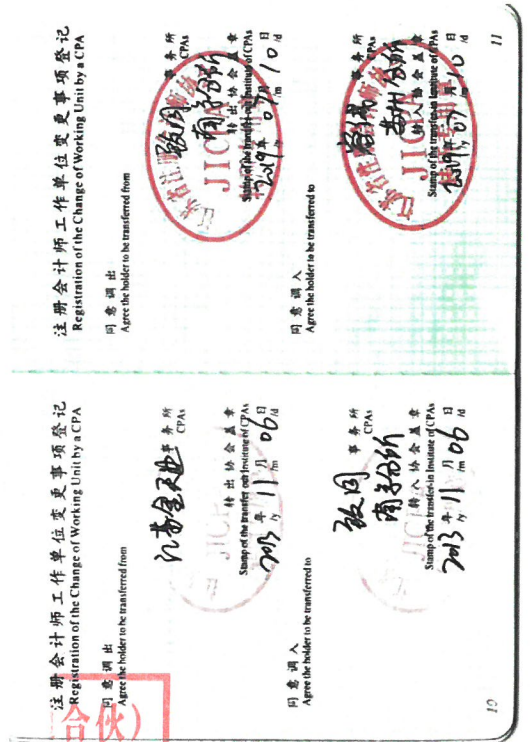 注册会计师工作单位变更事项登记
Registration of the Change of Working Unit by a CPA
同意调出
Agree the holder to be transferred from
江苏金天业 事务所
CPAs
转出协会盖章
Stamp of the transfer-out Institute of CPAs
2013 年 11 月 06 日
/y /m /d
同意调入
Agree the holder to be transferred to
致同 事务所
CPAs
南京分所
转入协会盖章
Stamp of the transfer-in Institute of CPAs
2013 年 11 月 06 日
/y /m /d
10
合伙）
注册会计师工作单位变更事项登记
Registration of the Change of Working Unit by a CPA
同意调出
Agree the holder to be transferred from
致同 事务所
CPAs
南京分所
JICPA
转出协会盖章
Stamp of the transfer-out Institute of CPAs
2019 年 07 月 10 日
/y /m /d
同意调入
Agree the holder to be transferred to
事务所
CPAs
苏州分所
JICPA
转入协会盖章
Stamp of the transfer-in Institute of CPAs
2019 年 07 月 10 日
/y /m /d
11